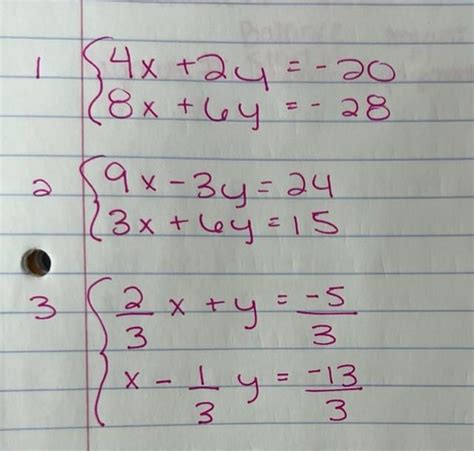 1 { 4x + 2y = -20
8x + 6y = - 28
2 { 9x - 3y = 24
3x + 6y = 15
3 { 2/3 x + y = -5/3
x - 1/3 y = -13/3